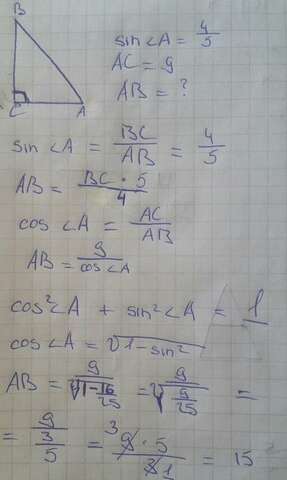 B
C
A
sin∠A = 4/5
AC = 9
AB = ?
sin ∠A = BC/AB = 4/5
AB = BC · 5/4
cos ∠A = AC/AB
AB = 9/cos∠A
cos²∠A + sin²∠A = 1
cos ∠A = √1-sin²
AB = 9/√1-16/25 = 9/√9/25 =
= 9/3/5 = ³9 · 5/3 1 = 15